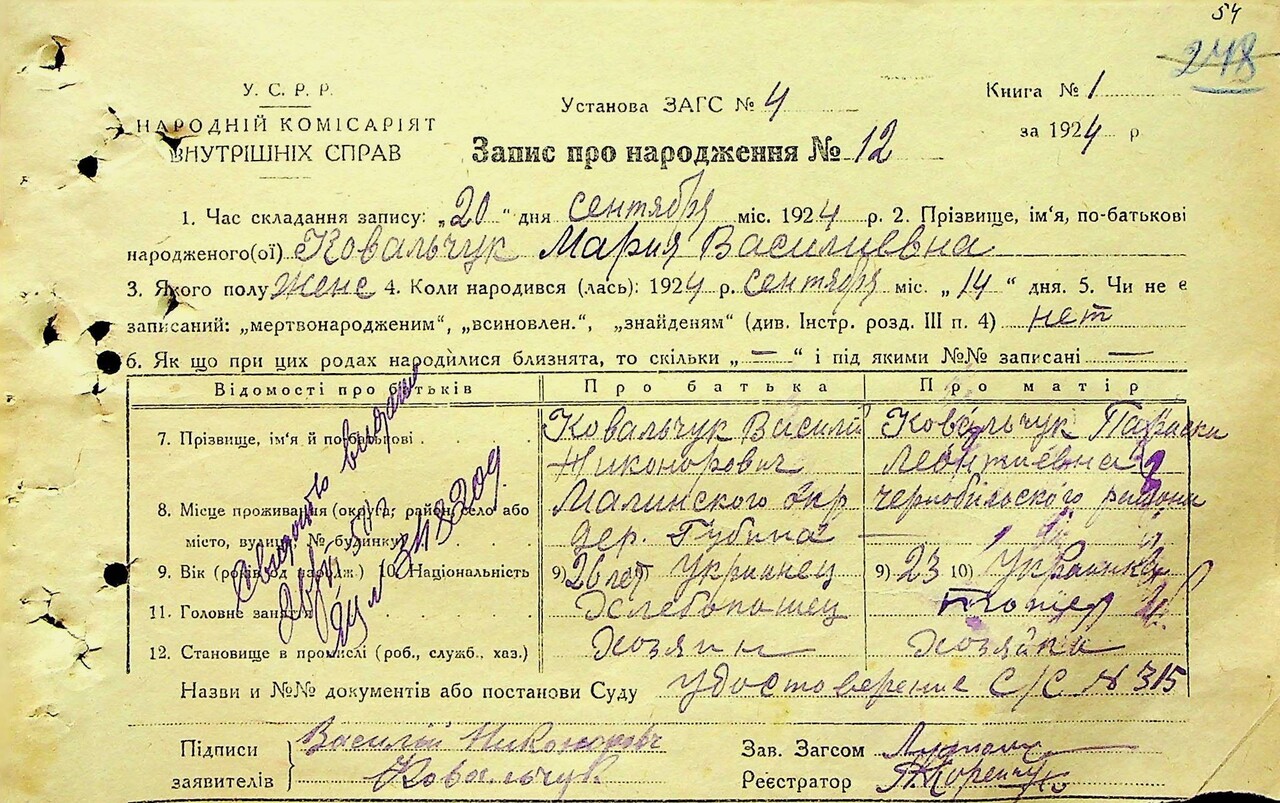 54
248
У. С. Р. Р.
НАРОДНІЙ КОМІСАРІЯТ
ВНУТРІШНІХ СПРАВ
Установа ЗАГС № 4
Книга № 1
за 1924 р
Запис про народження № 12
1. Час складання запису: „20“ дня сентября міс. 1924 р. 2. Прізвище, ім'я, по-батькові
народженого(ої) Ковальчук Мария Василиевна
3. Якого полу женс 4. Коли народився (лась): 1924 р. сентября міс. „14“ дня. 5. Чи не є
записаний: „мертвонародженим“, „всиновлен.“, „знайденям“ (див. Інстр. розд. III п. 4) нет
6. Як що при цих родах народилися близнята, то скільки „—“ і під якими №№ записані —
Відомості про батьків Про батька Про матір
7. Прізвище, ім'я й по-батькові Ковальчук Василий Ковальчук Параски
Никонорович Леонтиевна
8. Місце проживання (округа, район, село або Малинского окр чернобильского района
місто, вулиця, № будинку) дер. Губина —
9. Вік (роки од нарödж.) 10. Національність 9) 26 лет 10) Украинец 9) 23 10) Украинка
11. Головне заняття Хлебопашец тоже
12. Становище в промислі (роб., служб., хаз.) Хозяин Хозяйка
Назви и №№ документів або постанови Суду удостоверение С/С № 315
Підписи заявителів Василий Никонорович
Ковальчук
Зав. Загсом
Реєстратор